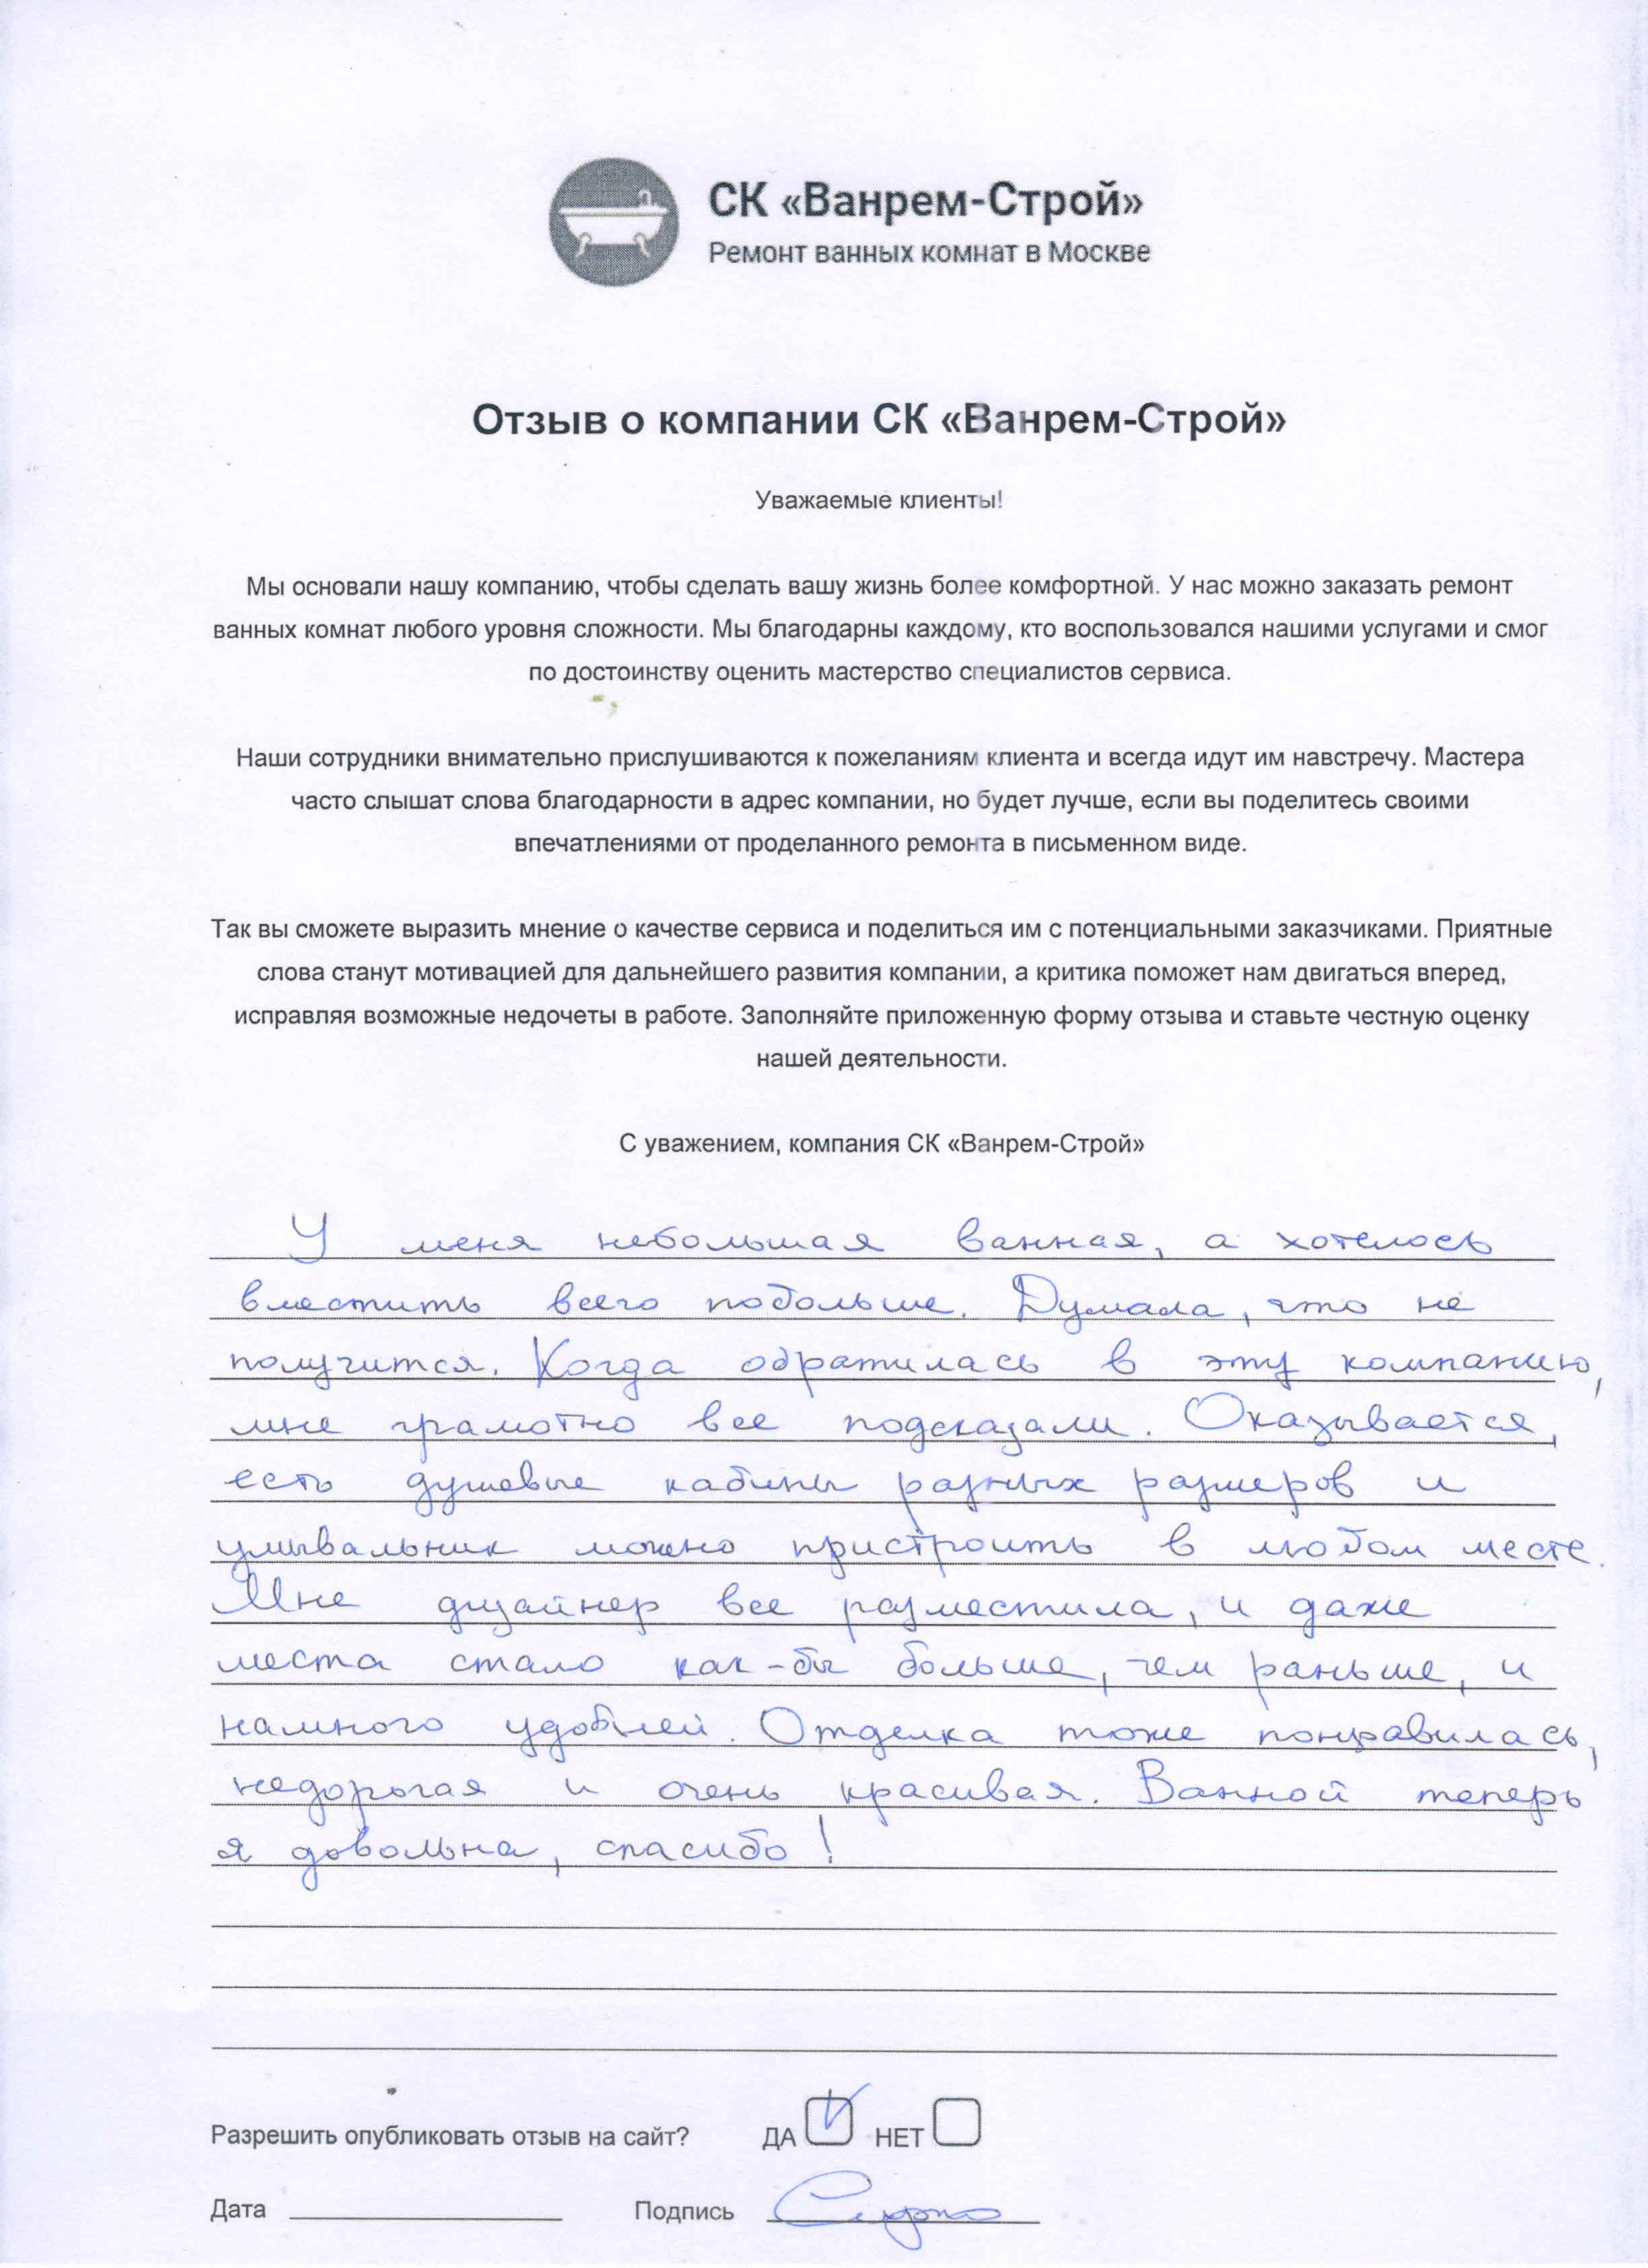 СК «Ванрем-Строй»
Ремонт ванных комнат в Москве
Отзыв о компании СК «Ванрем-Строй»
Уважаемые клиенты!
Мы основали нашу компанию, чтобы сделать вашу жизнь более комфортной. У нас можно заказать ремонт
ванных комнат любого уровня сложности. Мы благодарны каждому, кто воспользовался нашими услугами и смог
по достоинству оценить мастерство специалистов сервиса.
Наши сотрудники внимательно прислушиваются к пожеланиям клиента и всегда идут им навстречу. Мастера
часто слышат слова благодарности в адрес компании, но будет лучше, если вы поделитесь своими
впечатлениями от проделанного ремонта в письменном виде.
Так вы сможете выразить мнение о качестве сервиса и поделиться им с потенциальными заказчиками. Приятные
слова станут мотивацией для дальнейшего развития компании, а критика поможет нам двигаться вперед,
исправляя возможные недочеты в работе. Заполняйте приложенную форму отзыва и ставьте честную оценку
нашей деятельности.
С уважением, компания СК «Ванрем-Строй»
У меня небольшая ванная, а хотелось
вместить всего побольше. Думала, что не
получится. Когда обратилась в эту компанию,
мне грамотно все подсказали. Оказывается,
есть душевые кабины разных размеров и
умывальник можно пристроить в любом месте.
Мне дизайнер все разместила, и даже
места стало как-бы больше, чем раньше, и
намного удобней. Отделка тоже понравилась,
недорогая и очень красивая. Ванной теперь
я довольна, спасибо!
Разрешить опубликовать отзыв на сайт? ДА НЕТ
Дата Подпись